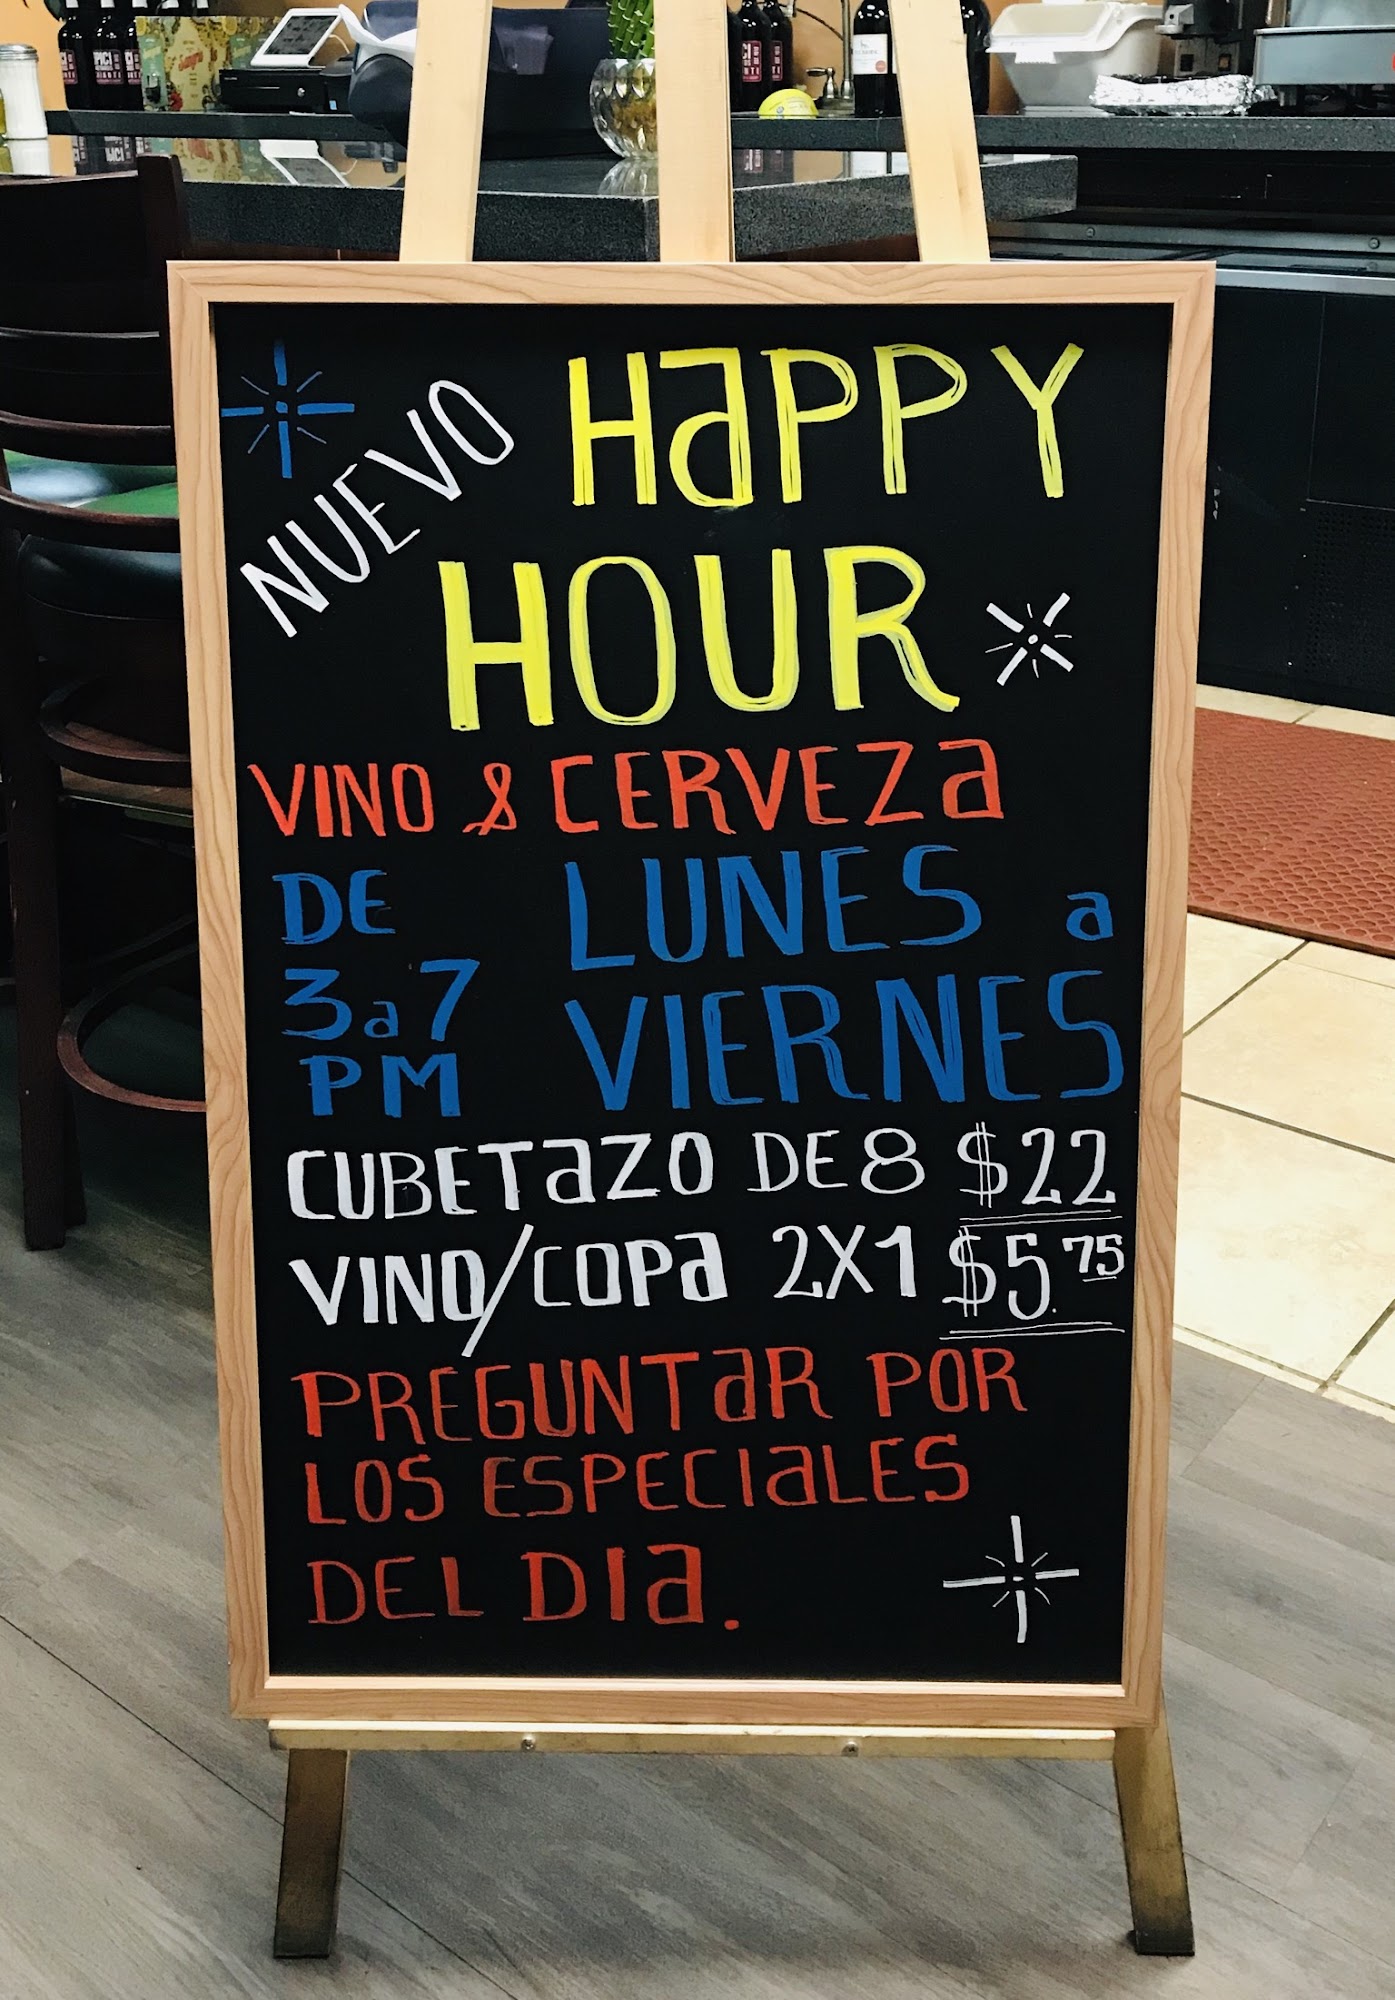 NUEVO
HAPPY
HOUR
VINO & CERVEZA
DE
3 a 7
PM
LUNES a
VIERNES
CUBETAZO DE 8 $22
VINO/COPA 2X1 $5.75
PREGUNTAR POR
LOS ESPECIALES
DEL DIA.